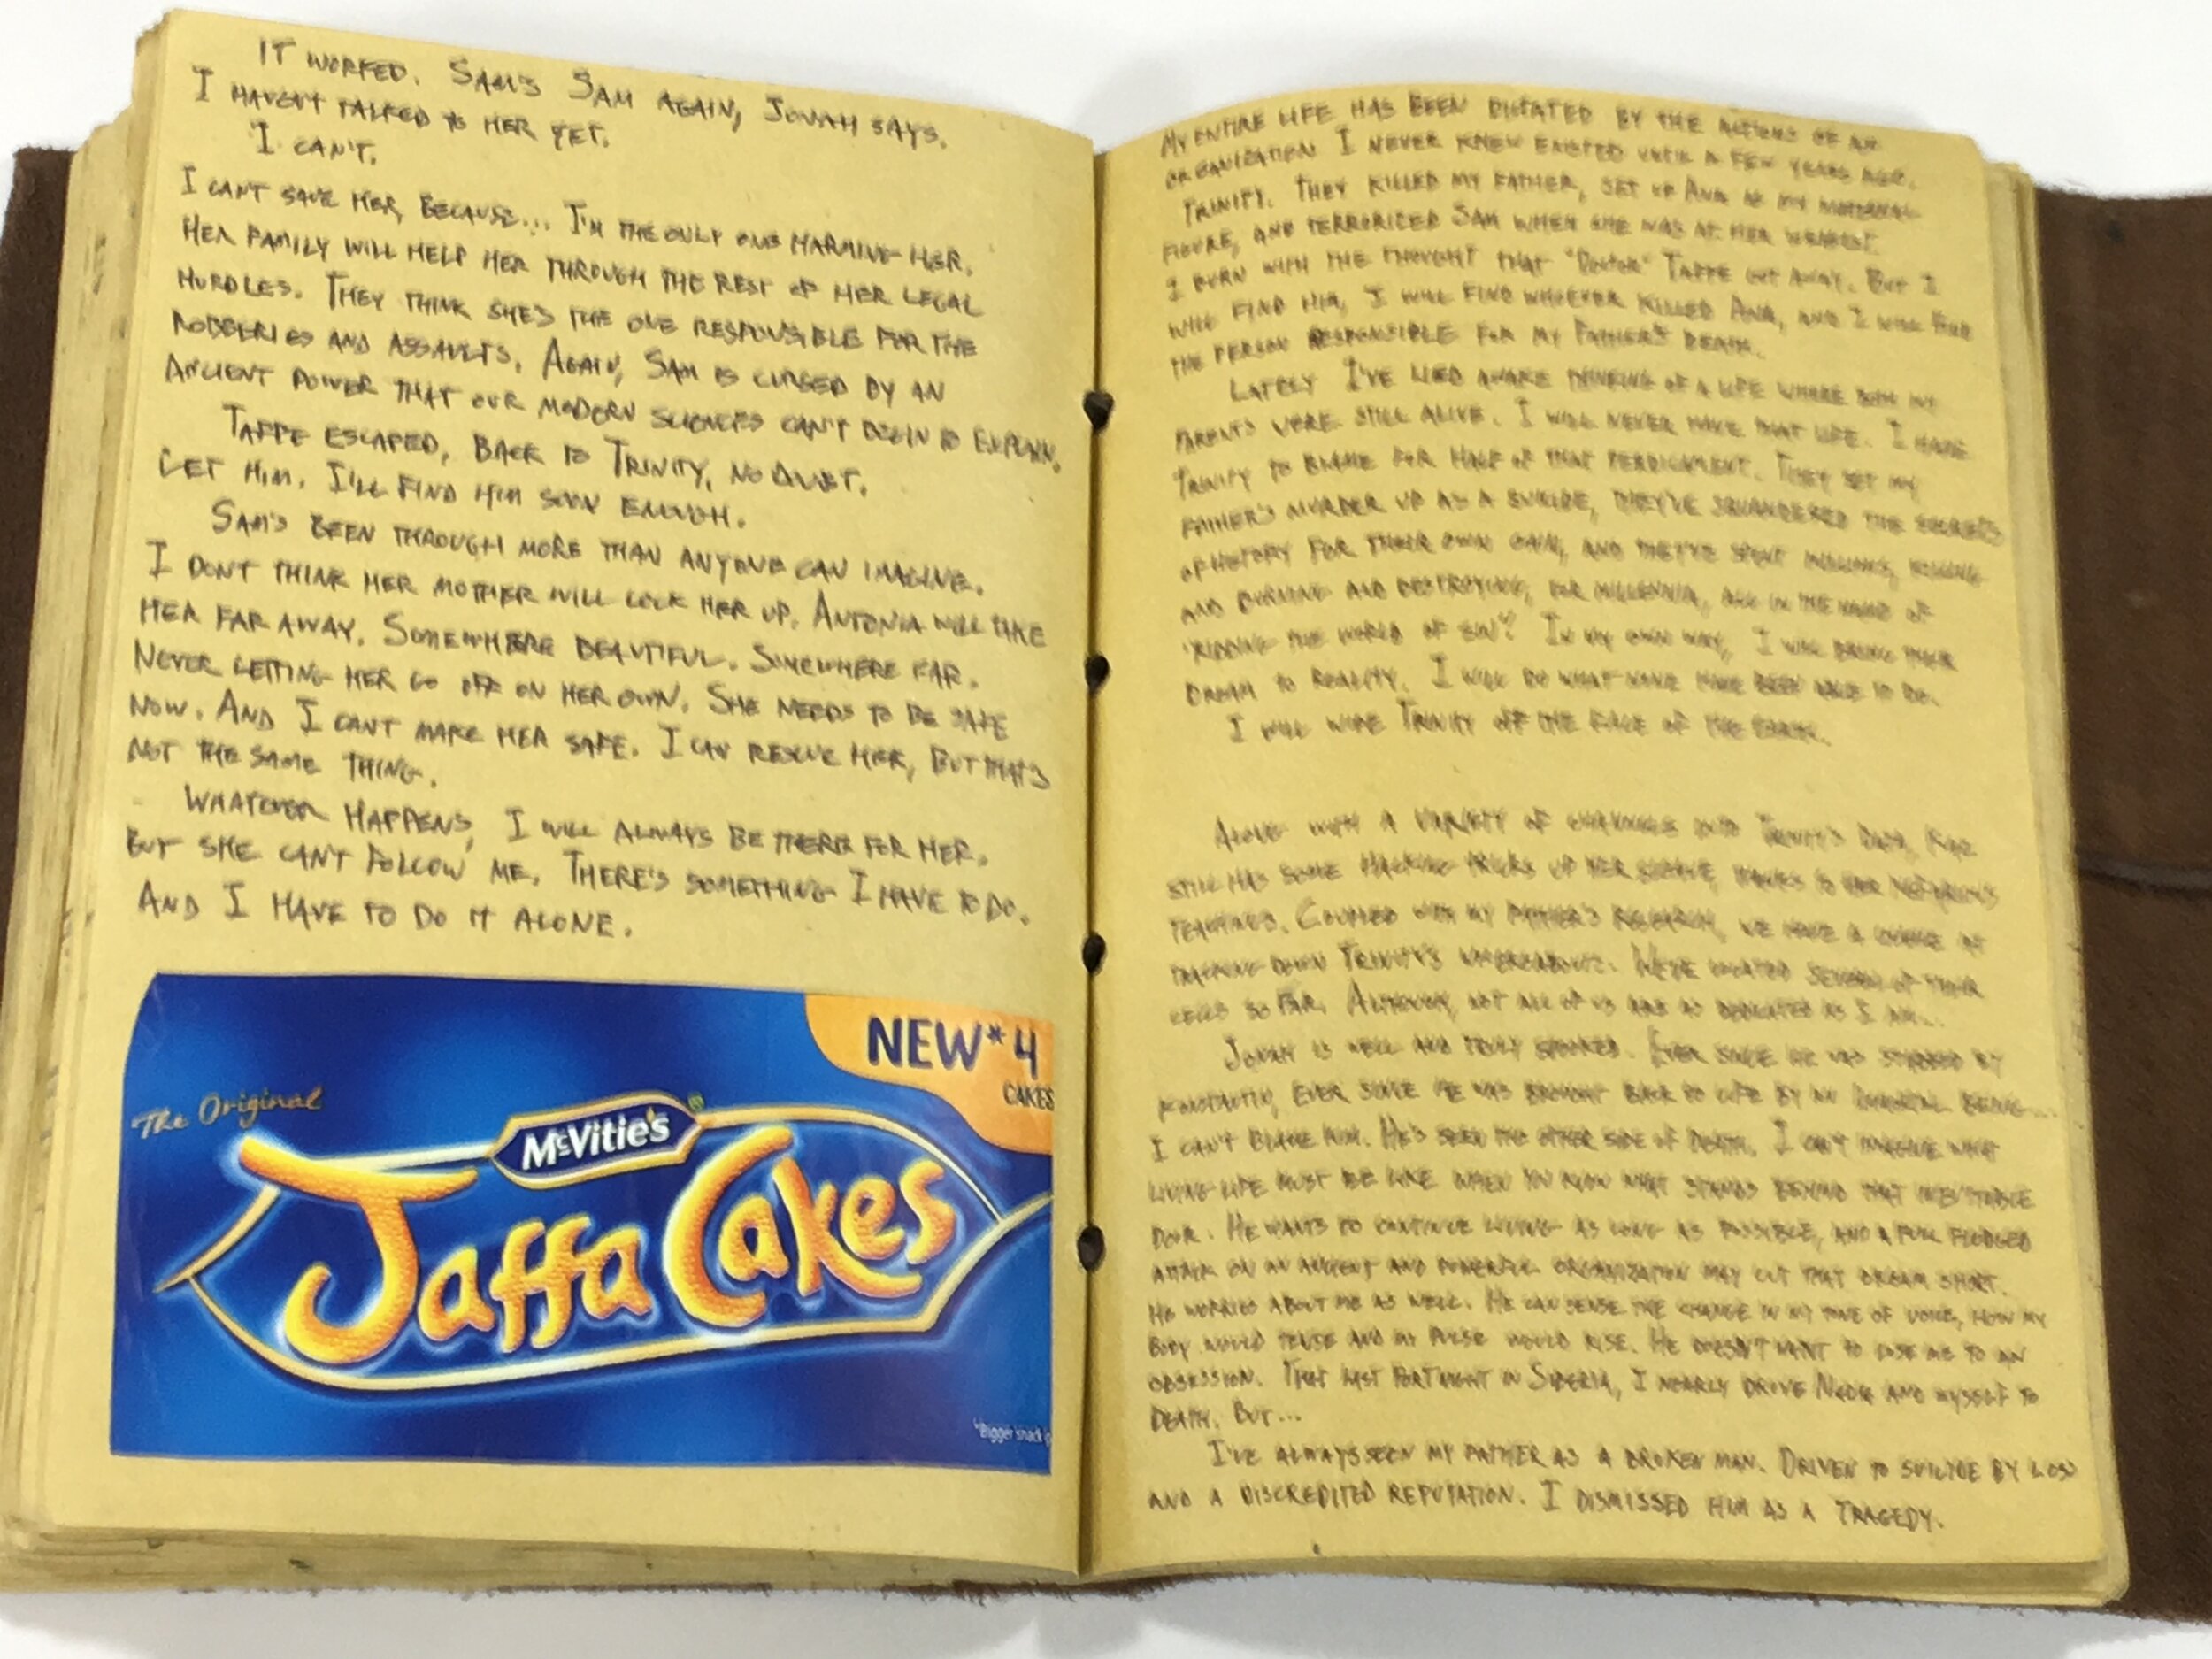 IT WORKED. SAM'S SAM AGAIN, JONAH SAYS.
I HAVEN'T TALKED TO HER YET.
I CAN'T.
I CAN'T SAVE HER, BECAUSE... I'M THE ONLY ONE HARMING HER.
HER FAMILY WILL HELP HER THROUGH THE REST OF HER LEGAL
HURDLES. THEY THINK SHE'S THE ONE RESPONSIBLE FOR THE
ROBBERIES AND ASSAULTS. AGAIN, SAM IS CURSED BY AN
ANCIENT POWER THAT OUR MODERN SCIENCES CAN'T BEGIN TO EXPLAIN.
TAPPE ESCAPED, BACK TO TRINITY, NO DOUBT.
LET HIM. I'LL FIND HIM SOON ENOUGH.
SAM'S BEEN THROUGH MORE THAN ANYONE CAN IMAGINE.
I DON'T THINK HER MOTHER WILL LOCK HER UP. ANTONIA WILL TAKE
HER FAR AWAY. SOMEWHERE BEAUTIFUL. SOMEWHERE FAR.
NEVER LETTING HER GO OFF ON HER OWN. SHE NEEDS TO BE SAFE
NOW. AND I CAN'T MAKE HER SAFE. I CAN RESCUE HER, BUT THAT'S
NOT THE SAME THING.
WHATEVER HAPPENS, I WILL ALWAYS BE THERE FOR HER.
BUT SHE CAN'T FOLLOW ME. THERE'S SOMETHING I HAVE TO DO.
AND I HAVE TO DO IT ALONE.
NEW* 4
CAKES
The Original
McVitie's
Jaffa Cakes
*Bigger snack
MY ENTIRE LIFE HAS BEEN DICTATED BY THE ACTIONS OF AN
ORGANIZATION I NEVER KNEW EXISTED UNTIL A FEW YEARS AGO.
TRINITY. THEY KILLED MY FATHER, SET UP ANA AS MY MATERNAL
FIGURE, AND TERRORIZED SAM WHEN SHE WAS AT HER WEAKEST.
I BURN WITH THE THOUGHT THAT "DOCTOR" TAPPE GOT AWAY. BUT I
WILL FIND HIM, I WILL FIND WHOEVER KILLED ANA, AND I WILL FIND
THE PERSON RESPONSIBLE FOR MY FATHER'S DEATH.
LATELY I'VE LIED AWAKE THINKING OF A LIFE WHERE BOTH MY
PARENTS WERE STILL ALIVE. I WILL NEVER HAVE THAT LIFE. I HAVE
TRINITY TO BLAME FOR HALF OF THAT PREDICAMENT. THEY SET MY
FATHER'S MURDER UP AS A SUICIDE, THEY'VE SQUANDERED THE SECRETS
OF HISTORY FOR THEIR OWN GAIN, AND THEY'VE SPENT MILLIONS, KILLING
AND BURNING AND DESTROYING, FOR MILLENNIA, ALL IN THE NAME OF
'RIDDING THE WORLD OF SIN'. IN MY OWN WAY, I WILL BRING THEIR
DREAM TO REALITY. I WILL DO WHAT NONE HAVE BEEN ABLE TO DO.
I WILL WIPE TRINITY OFF THE FACE OF THE EARTH.
ALONG WITH A VARIETY OF CHANNELS INTO TRINITY'S DATA, KAZ
STILL HAS SOME HACKING TRICKS UP HER SLEEVE, THANKS TO HER
TEACHINGS. COUPLED WITH MY FATHER'S RESEARCH, WE HAVE A CHANCE AT
TRACKING DOWN TRINITY'S WHEREABOUTS. WE'VE LOCATED SEVERAL OF THEIR
CELLS SO FAR. ALTHOUGH, NOT ALL OF US ARE AS DEDICATED AS I AM...
JONAH IS WELL AND TRULY SPOOKED. EVER SINCE HE WAS STABBED BY
KONSTANTIN, EVER SINCE HE WAS BROUGHT BACK TO LIFE BY AN IMMORTAL BEING...
I CAN'T BLAME HIM. HE'S SEEN THE OTHER SIDE OF DEATH. I CAN'T IMAGINE WHAT
LIVING LIFE MUST BE LIKE WHEN YOU KNOW WHAT STANDS BEHIND THAT INEVITABLE
DOOR. HE WANTS TO CONTINUE LIVING AS LONG AS POSSIBLE, AND A FULL FLEDGED
ATTACK ON AN ANCIENT AND POWERFUL ORGANIZATION MAY CUT THAT DREAM SHORT.
HE WORRIES ABOUT ME AS WELL. HE CAN SENSE THE CHANGE IN MY TONE OF VOICE, HOW MY
BODY WOULD TENSE AND MY PULSE WOULD RISE. HE DOESN'T WANT TO LOSE ME TO AN
OBSESSION. THAT LAST FORTNIGHT IN SIBERIA, I NEARLY DROVE NADIA AND MYSELF TO
DEATH. BUT...
I'VE ALWAYS SEEN MY FATHER AS A BROKEN MAN. DRIVEN TO SUICIDE BY LOSS
AND A DISCREDITED REPUTATION. I DISMISSED HIM AS A TRAGEDY.